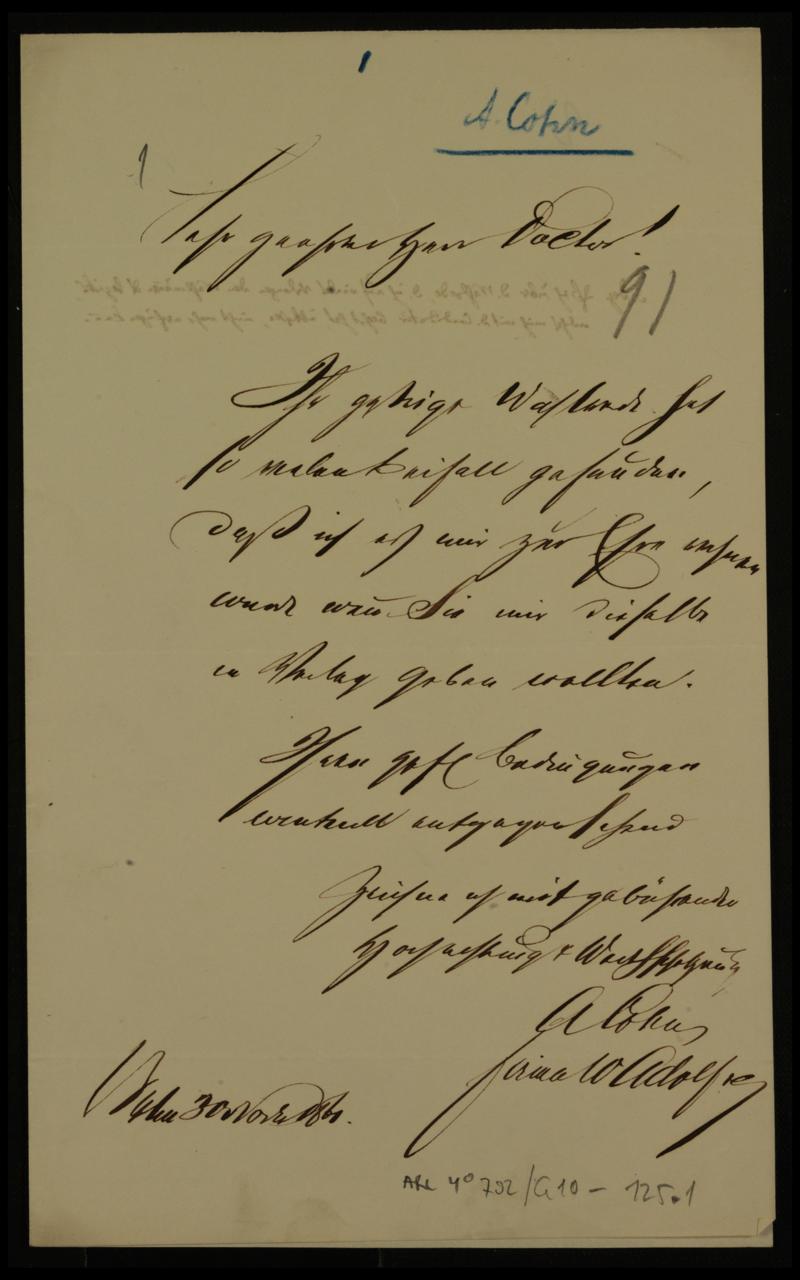 A. Cohn
1
Sehr geehrter Herr Doctor!
91
Ihr gestrige Wahlrede hat
so vielen Beifall gefunden,
daß ich es mir zur Ehre rechnen
würde wenn Sie mir dieselbe
in Verlag geben wollten.
Ihren gefl Bedingungen
eventuell entgegen sehend
zeichne ich mit gebührender
Hochachtung & Werthschätzung
A Cohn
Firma W Adolf & Co
Berlin 30 Novbr
ARC 4° 792/G10 - 125.1